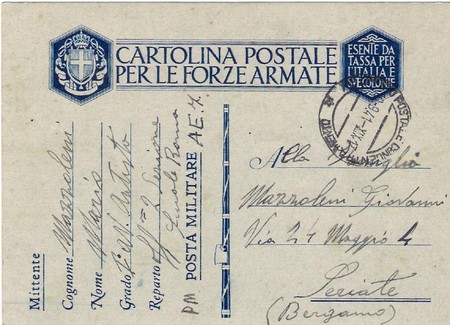 CARTOLINA POSTALE
PER LE FORZE ARMATE
ESENTE DA
TASSA PER
L'ITALIA E
SVE COLONIE
Mittente
Cognome Mazzoleni
Nome Mario
Grado
Reparto 2
Scuole Roma
POSTA MILITARE A E.
PM
POSTALE
Alla Famiglia
Mazzoleni Giovanni
Via 24 Maggio 4
Seriate
(Bergamo)